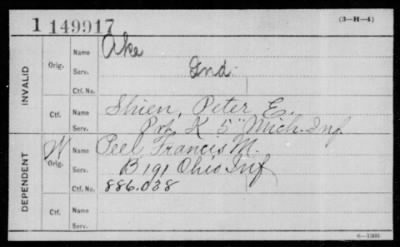 1 149917 (3—H—4)
INVALID
Orig.
Name Ake
Serv. Ind.
Ctf. No.
Ctf.
Name Shien, Peter E.
Serv. Pvt. K 5" Mich. Inf
DEPENDENT
W Orig.
Name Peel Francis M.
Serv. B 191 Ohio Inf
Ctf. No. 886.028
Ctf.
Name
Serv.